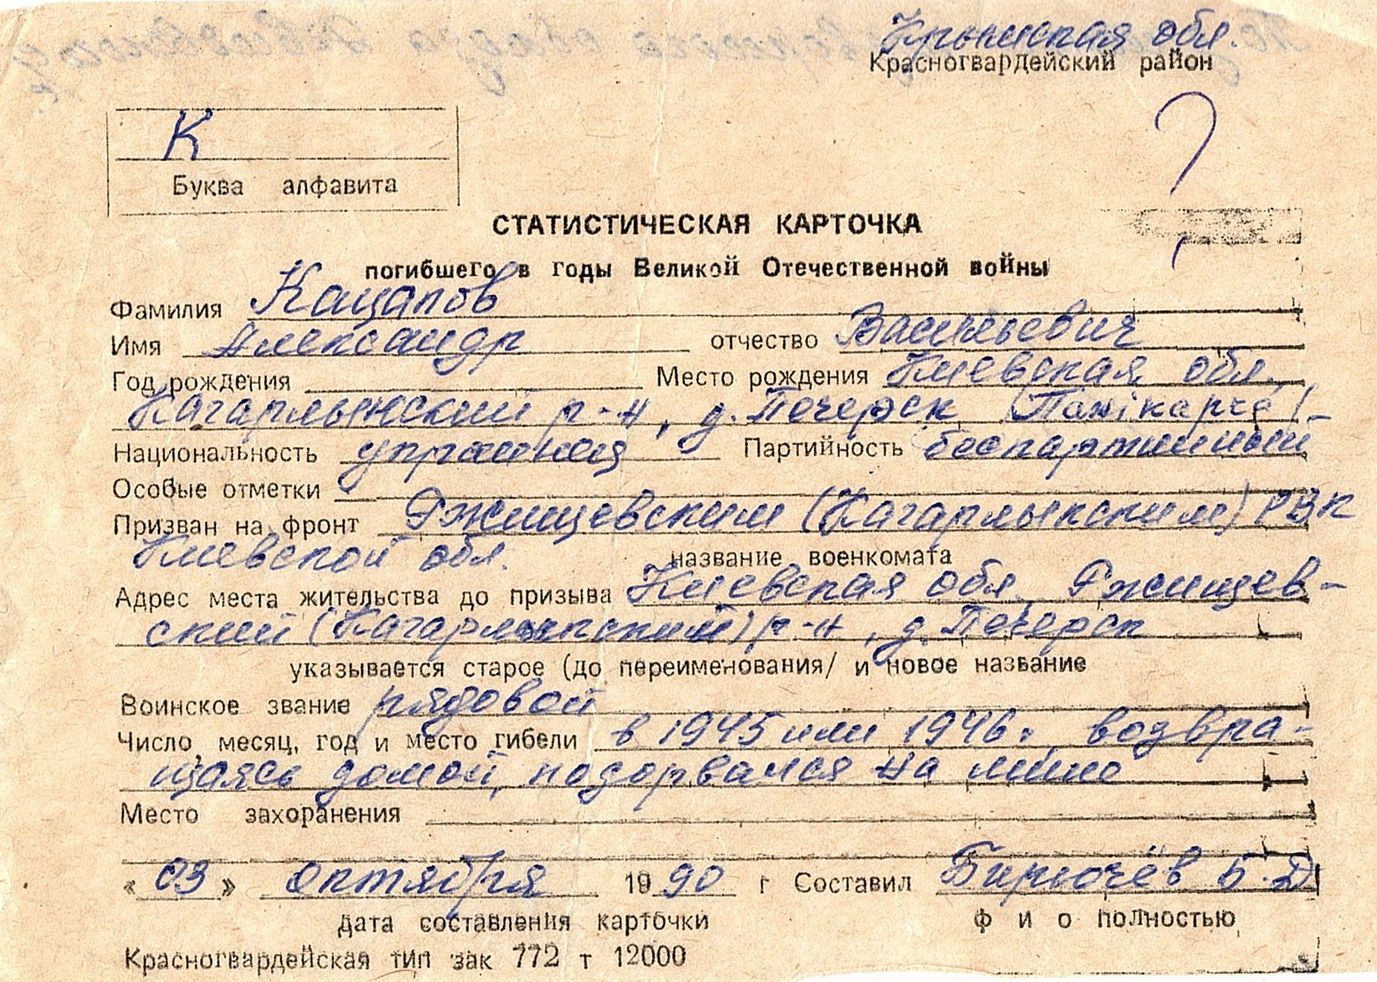 Крымская обл.
Красногвардейский район
К
Буква алфавита
?
СТАТИСТИЧЕСКАЯ КАРТОЧКА
погибшего в годы Великой Отечественной войны
Фамилия Кацапов
Имя Александр отчество Васильевич
Год рождения Место рождения Киевская обл.
Кагарлыкский р-н, д. Печерск
Национальность Партийность беспартийный
Особые отметки
Призван на фронт Ржищевским (Кагарлыкским) РВК
Киевской обл. название военкомата
Адрес места жительства до призыва Киевская обл. Ржищев-
ский (Кагарлыкский) р-н, д. Печерск
указывается старое (до переименования/ и новое название
Воинское звание рядовой
Число, месяц, год и место гибели в 1945 или 1946г. возвра-
щаясь домой, подорвался на мине
Место захоронения
« 03 » октября 1990 г Составил Бирючёв Б.Д.
дата составления карточки ф и о полностью
Красногвардейская тип зак 772 т 12000